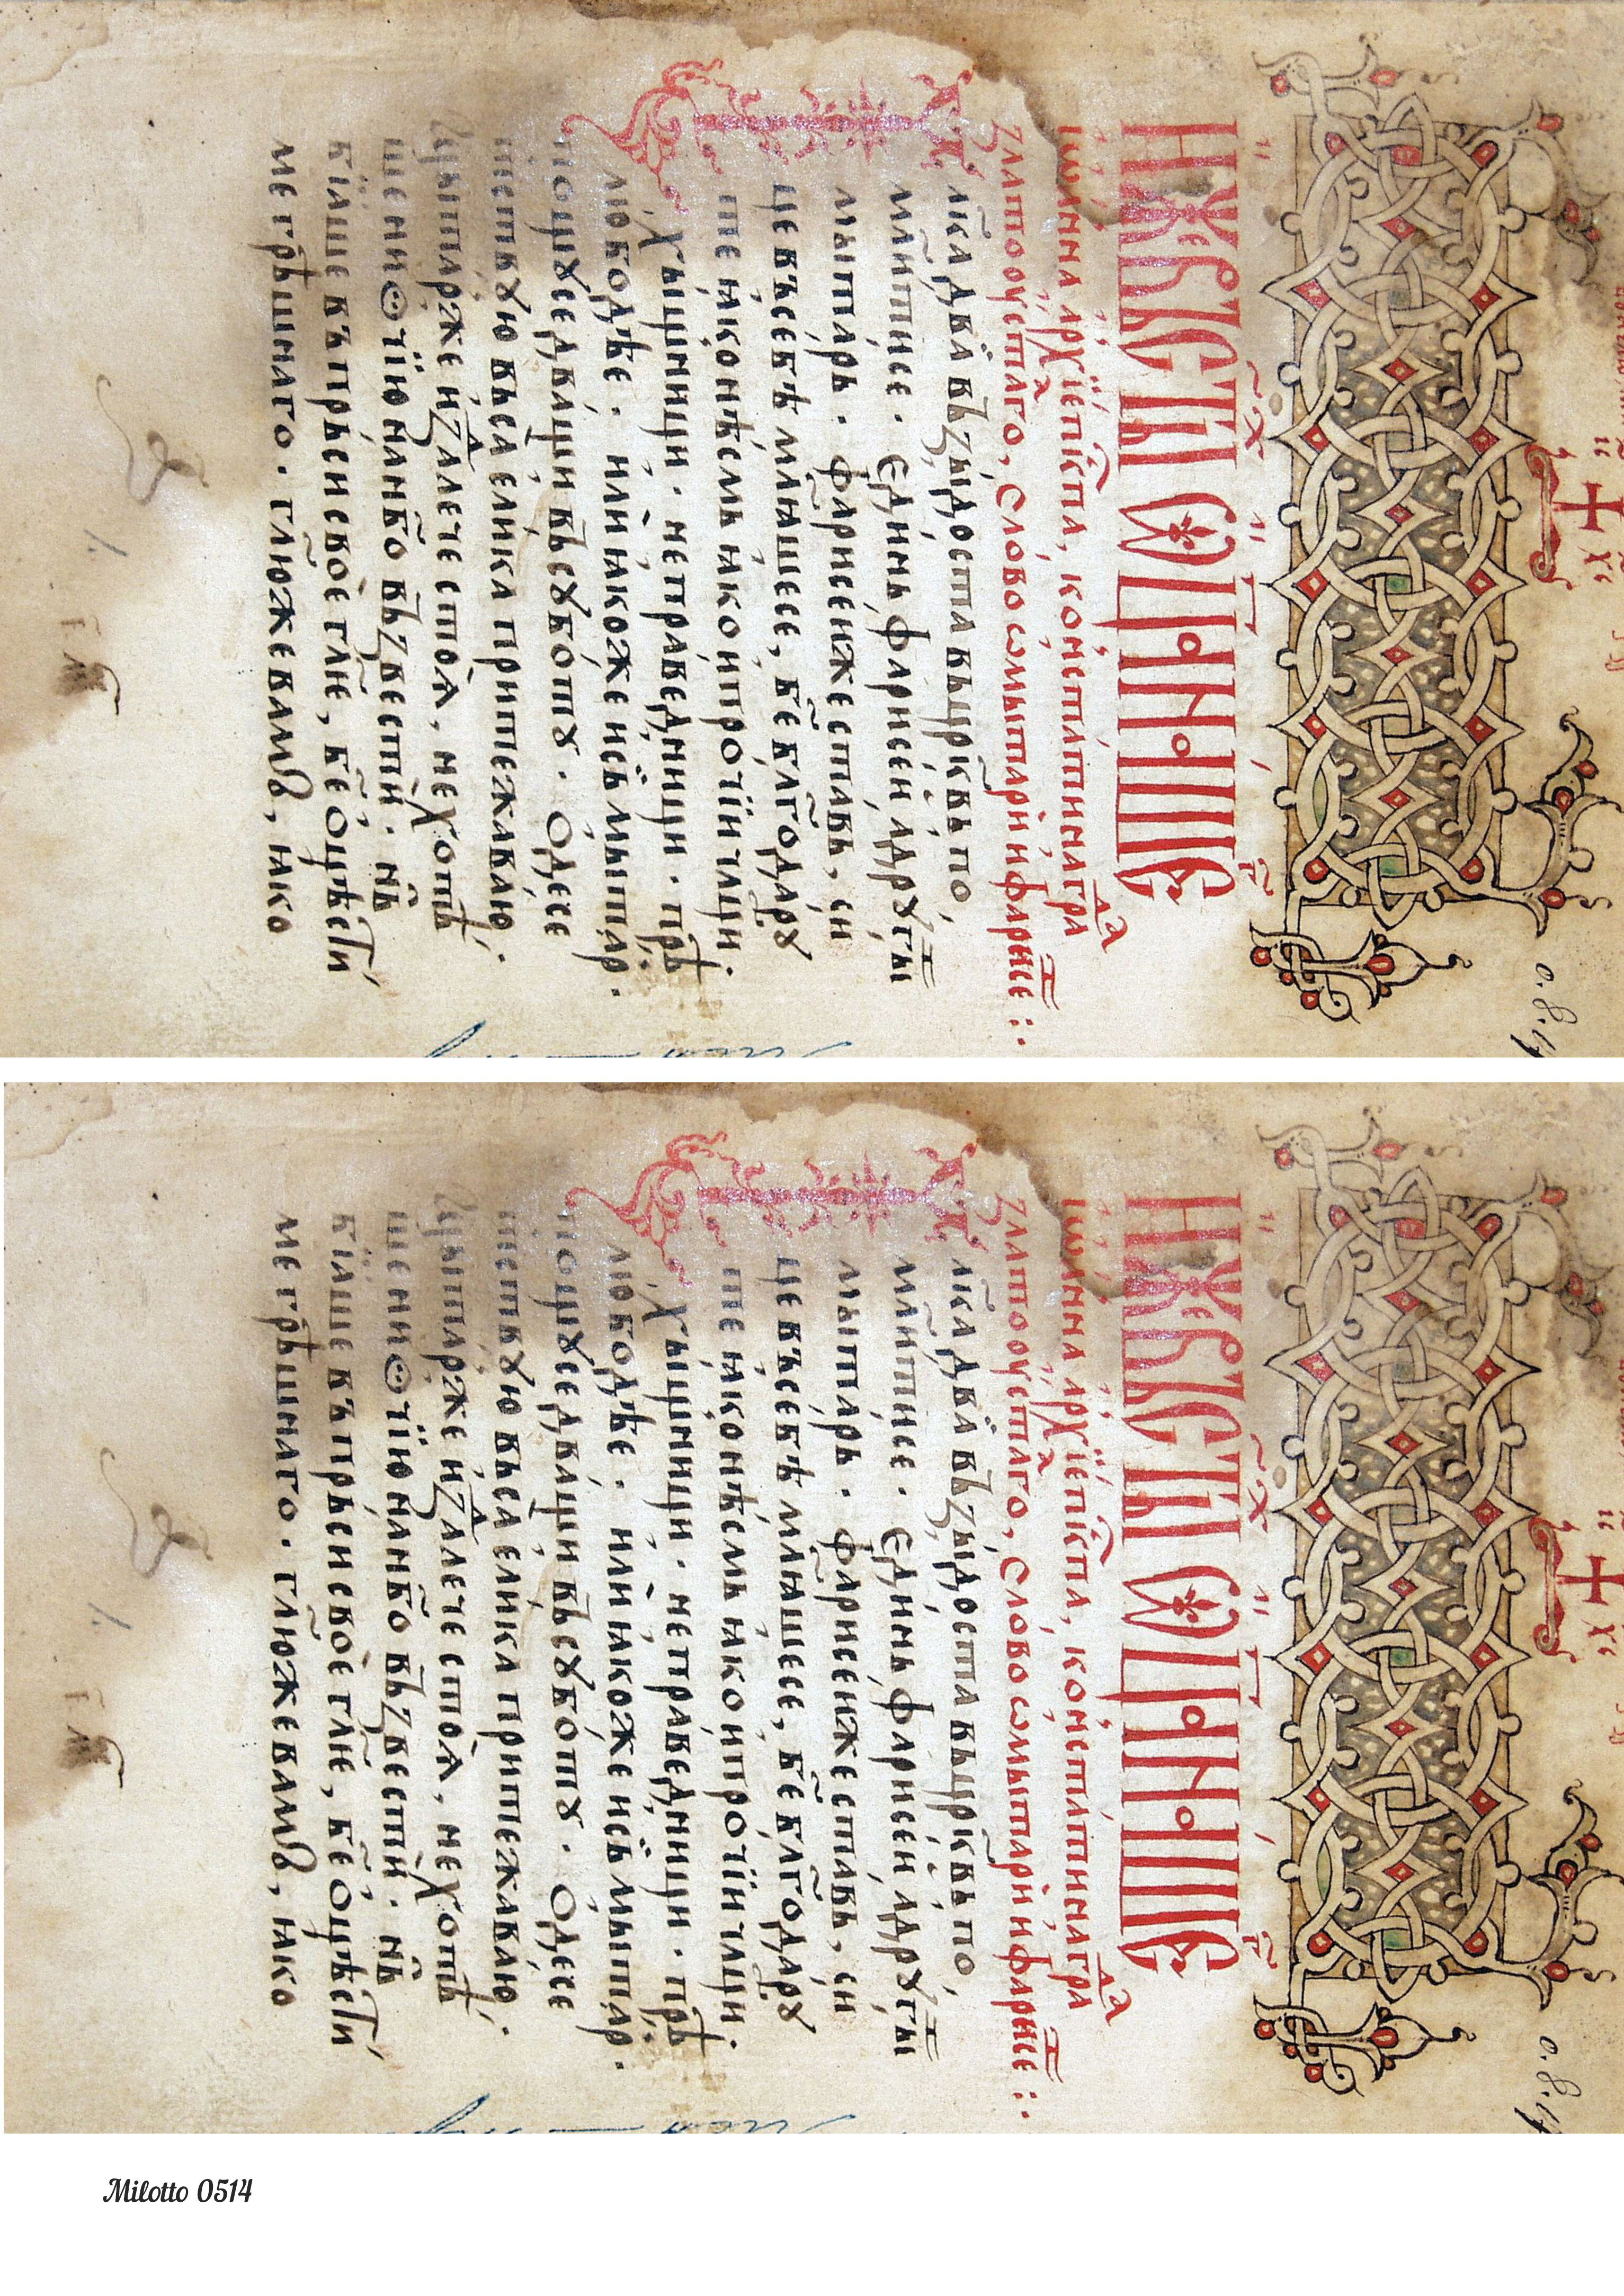 И́же въ ст҃ыⷯ ѿц҃ь нашеⷢ
Іѡанна архїеп҃кпа, константинаграⷣа
Златооустаго, Слово ѡ мытари и фарисеи :.
два възыдоста въ цр҃квь по,
мл҃итисе . единь фарисеи, а дрꙋгыи
мытарь . фарисеиже ставь, си
це въ себѣ млꙗшесе, б҃е бл҃годарꙋ
те ꙗко нѣсмь ꙗко и прочїи чл҃ци .
хыщници . неправедници . прѣ
любодѣе . или ꙗкоже и съ мытар .
пощꙋсе дващи въ сꙋботꙋ . Одесе
тьствꙋю вьса елика притежаваю .
мытарже издалече стоѧ, не хотѣ
ше ни ѻчїю на нб҃о възвести . нь
бїаше въ прьси своѐ гл҃ѥ, б҃е оцѣсти
ме грѣшнаго . гл҃юже вамъ, ꙗко
И́же въ ст҃ыⷯ ѿц҃ь нашеⷢ
Іѡанна архїеп҃кпа, константинаграⷣа
Златооустаго, Слово ѡ мытари и фарисеи :.
два възыдоста въ цр҃квь по,
мл҃итисе . единь фарисеи, а дрꙋгыи
мытарь . фарисеиже ставь, си
це въ себѣ млꙗшесе, б҃е бл҃годарꙋ
те ꙗко нѣсмь ꙗко и прочїи чл҃ци .
хыщници . неправедници . прѣ
любодѣе . или ꙗкоже и съ мытар .
пощꙋсе дващи въ сꙋботꙋ . Одесе
тьствꙋю вьса елика притежаваю .
мытарже издалече стоѧ, не хотѣ
ше ни ѻчїю на нб҃о възвести . нь
бїаше въ прьси своѐ гл҃ѥ, б҃е оцѣсти
ме грѣшнаго . гл҃юже вамъ, ꙗко
Milotto 0514